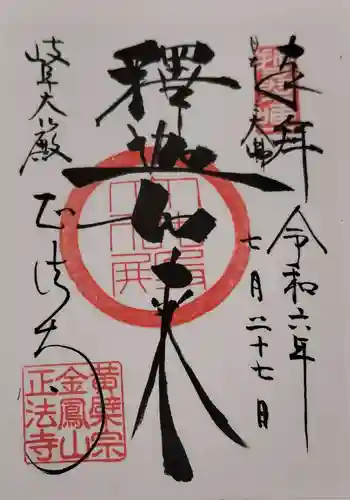 奉拝
令和六年
七月二十七日
釋迦如来
岐阜大殿
正法寺
黄檗宗
金鳳山
正法寺